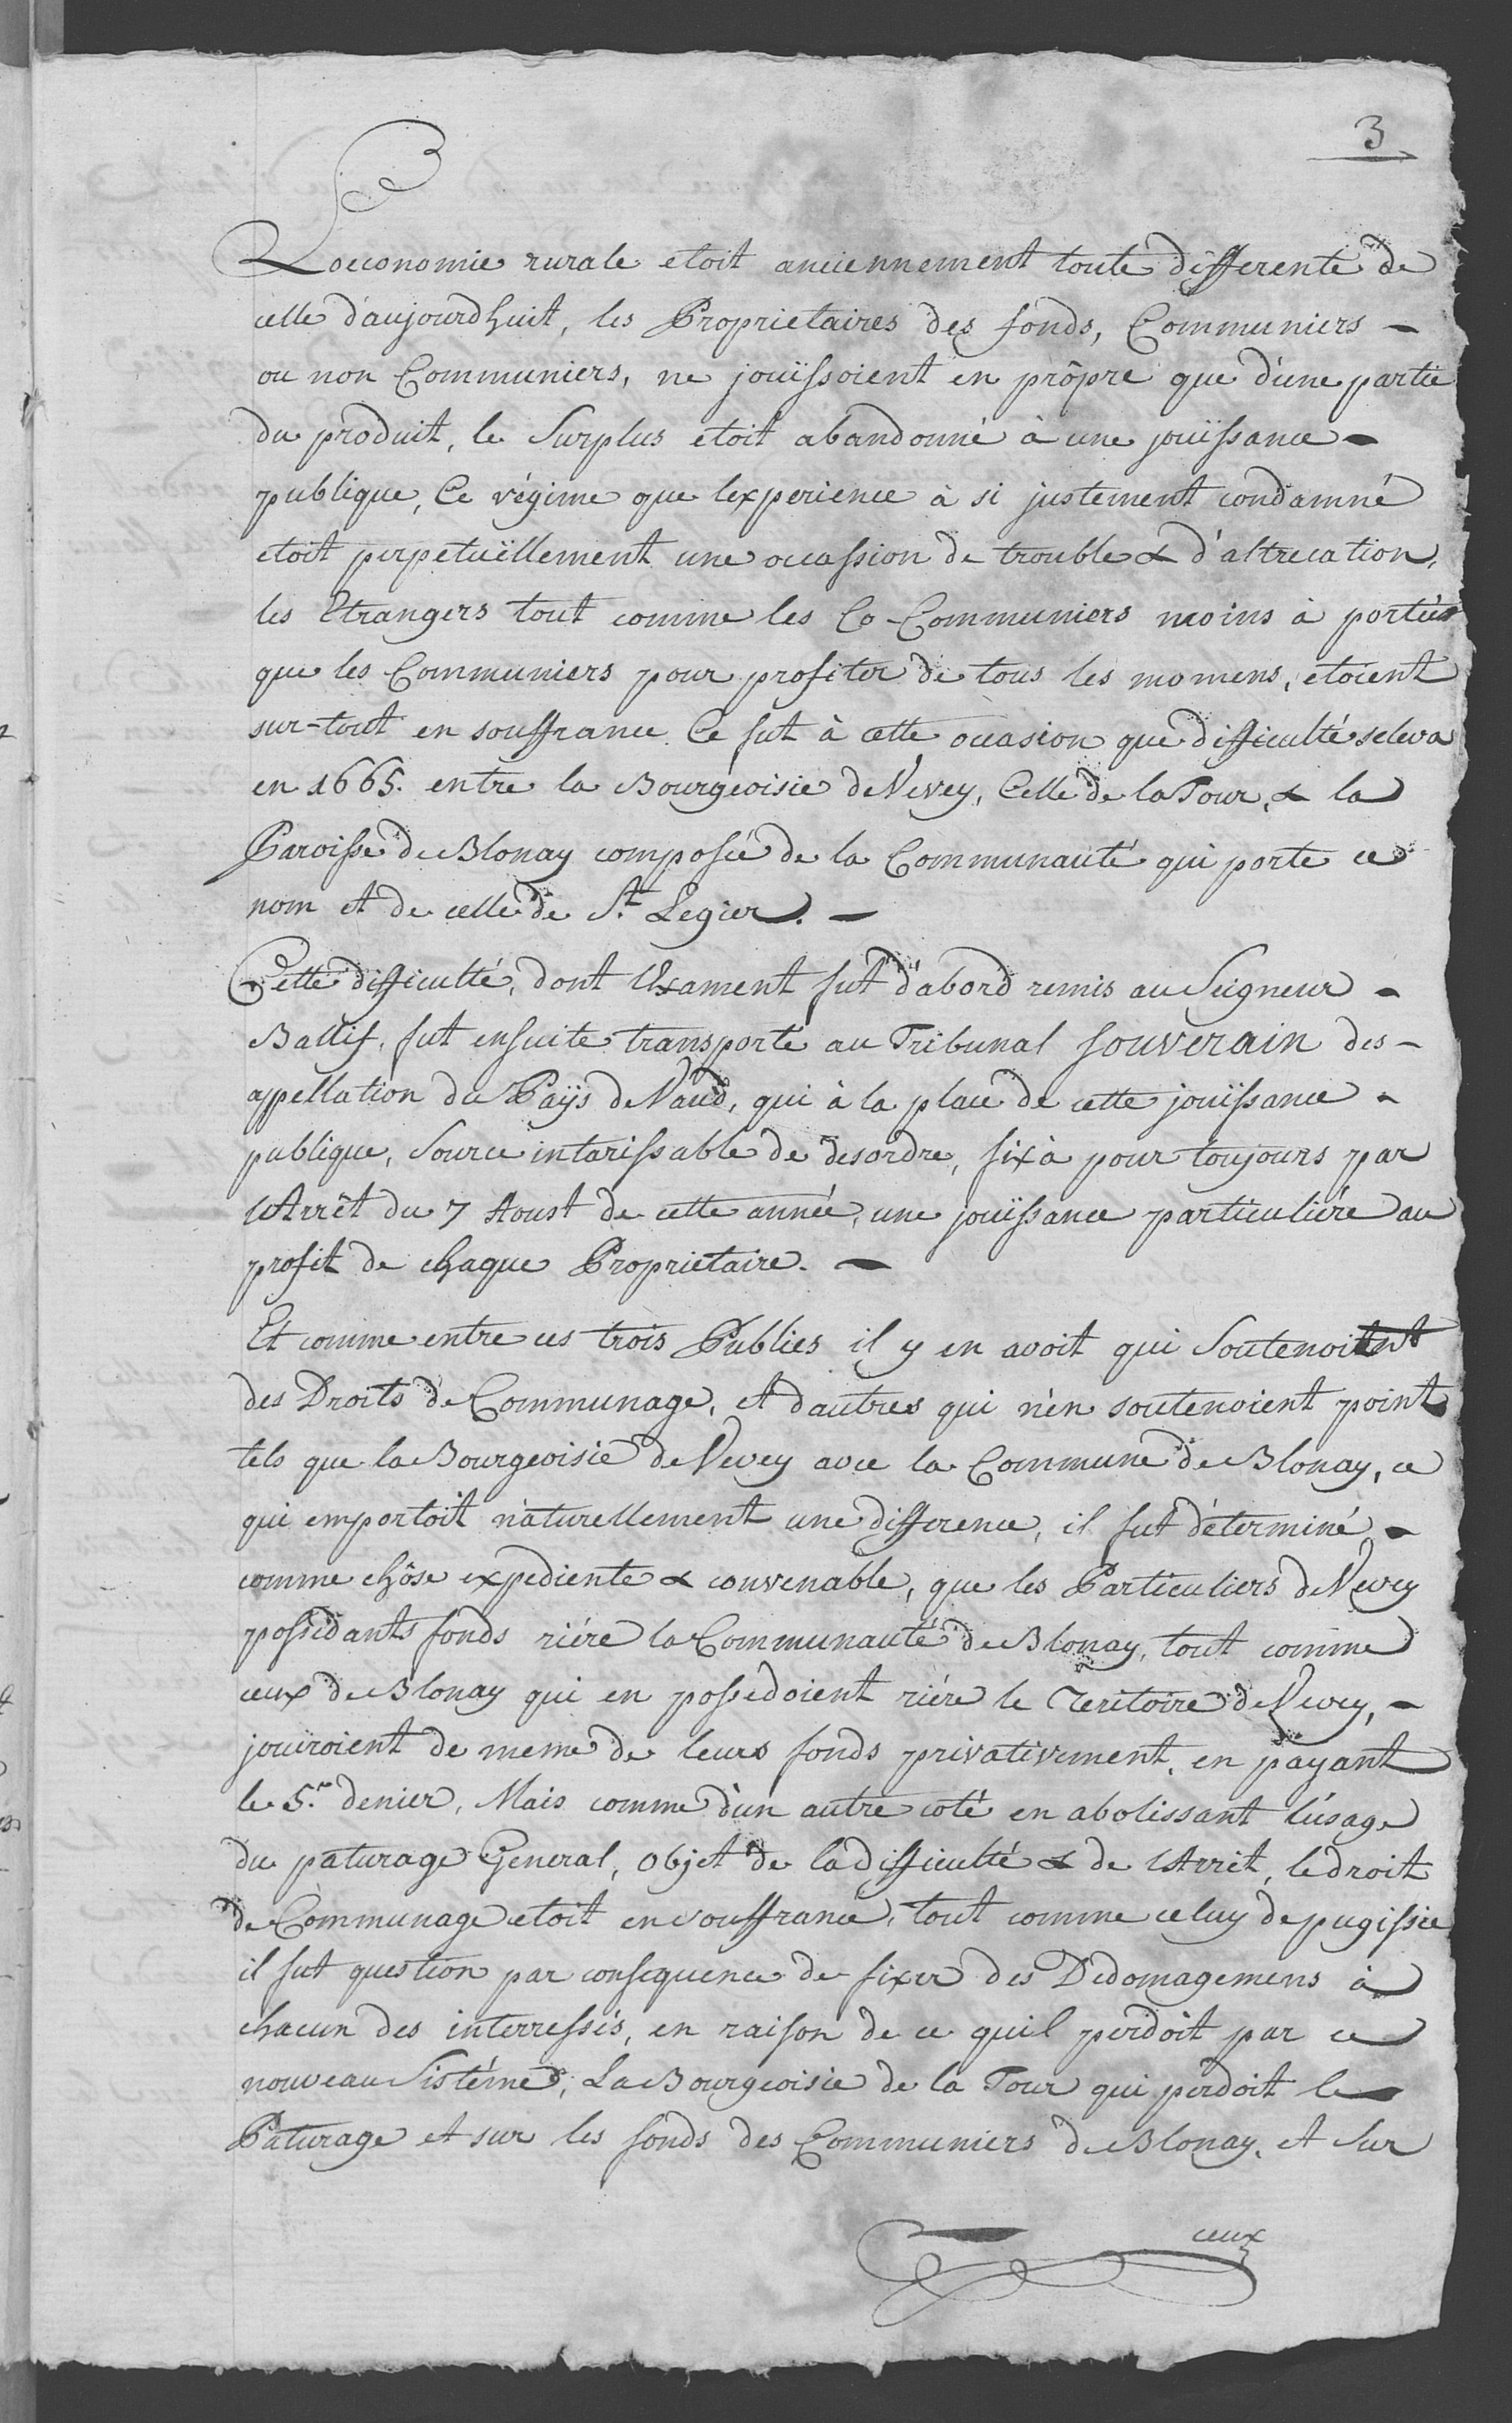 3
Loeconomie rurale etoit anciennement toute differente de
celle d'aujourdhuit, les Proprietaires des fonds, Communiers -
ou non Communiers, ne jouïssoient en prôpre que d'une partie
du produit, le Surplus etoit abandonné à une jouïssance -
publique, Ce régime que lexperience à si justement condamné
etoit perpetuëllement une occassion de trouble & d'altrecation,
les Etrangers tout comme les Co-Communiers moins à portés
que les Communiers pour profiter de tous les momens, etoient
sur-tout en souffrance. Ce fut à cette occasion que difficulté seleva
en 1665. entre la Bourgeoisie de Vevey, Celle de la Tour, & la
Paroisse de Blonay composée de la Communauté qui porte ce
nom et de celle de St. Legier. -
Cette difficulté, dont lExament fut d'abord remis au Seigneur -
Ballif, fut ensuite transporté au Tribunal souverain des -
appellation du Païs de Vaud, qui à la place de cette jouïssance -
publique, Source intarissable de desordre, fixà pour toujours par
lArrêt du 7 Aoust de cette année, une jouïssance particuliére au
profit de chaque Proprietaire. -
Et comme entre ces trois Publics il y en avoit qui Soutenoient
des Droits de Communage, et dautres qui n'en soutenoient point
tels que la Bourgeoisie de Vevey avec la Commune de Blonay, ce
qui emportoit naturellement une difference, il fut déterminé -
comme chôse expediente & convenable, que les Particuliers de Vevey
possédants fonds riére la Communauté de Blonay, tout comme
ceux de Blonay qui en possedoient riére le Teritoire de Vevey, -
jouiroient de meme de leurs fonds privativement, en payant
le 5.e denier, Mais comme d'un autre coté en abolissant l'usage
du paturage General, objet de la difficulté & de lArrêt, le droit
de Communage etoit en souffrance, tout comme celuy de pugissie
il fut question par consequence de fixer des Dédomagemens à
chacun des interressés, en raison de ce quil perdoit par ce
nouveau Sistéme, La Bourgeoisie de la Tour qui perdoit le
Paturage et sur les fonds des Communiers de Blonay, et sur
ceux